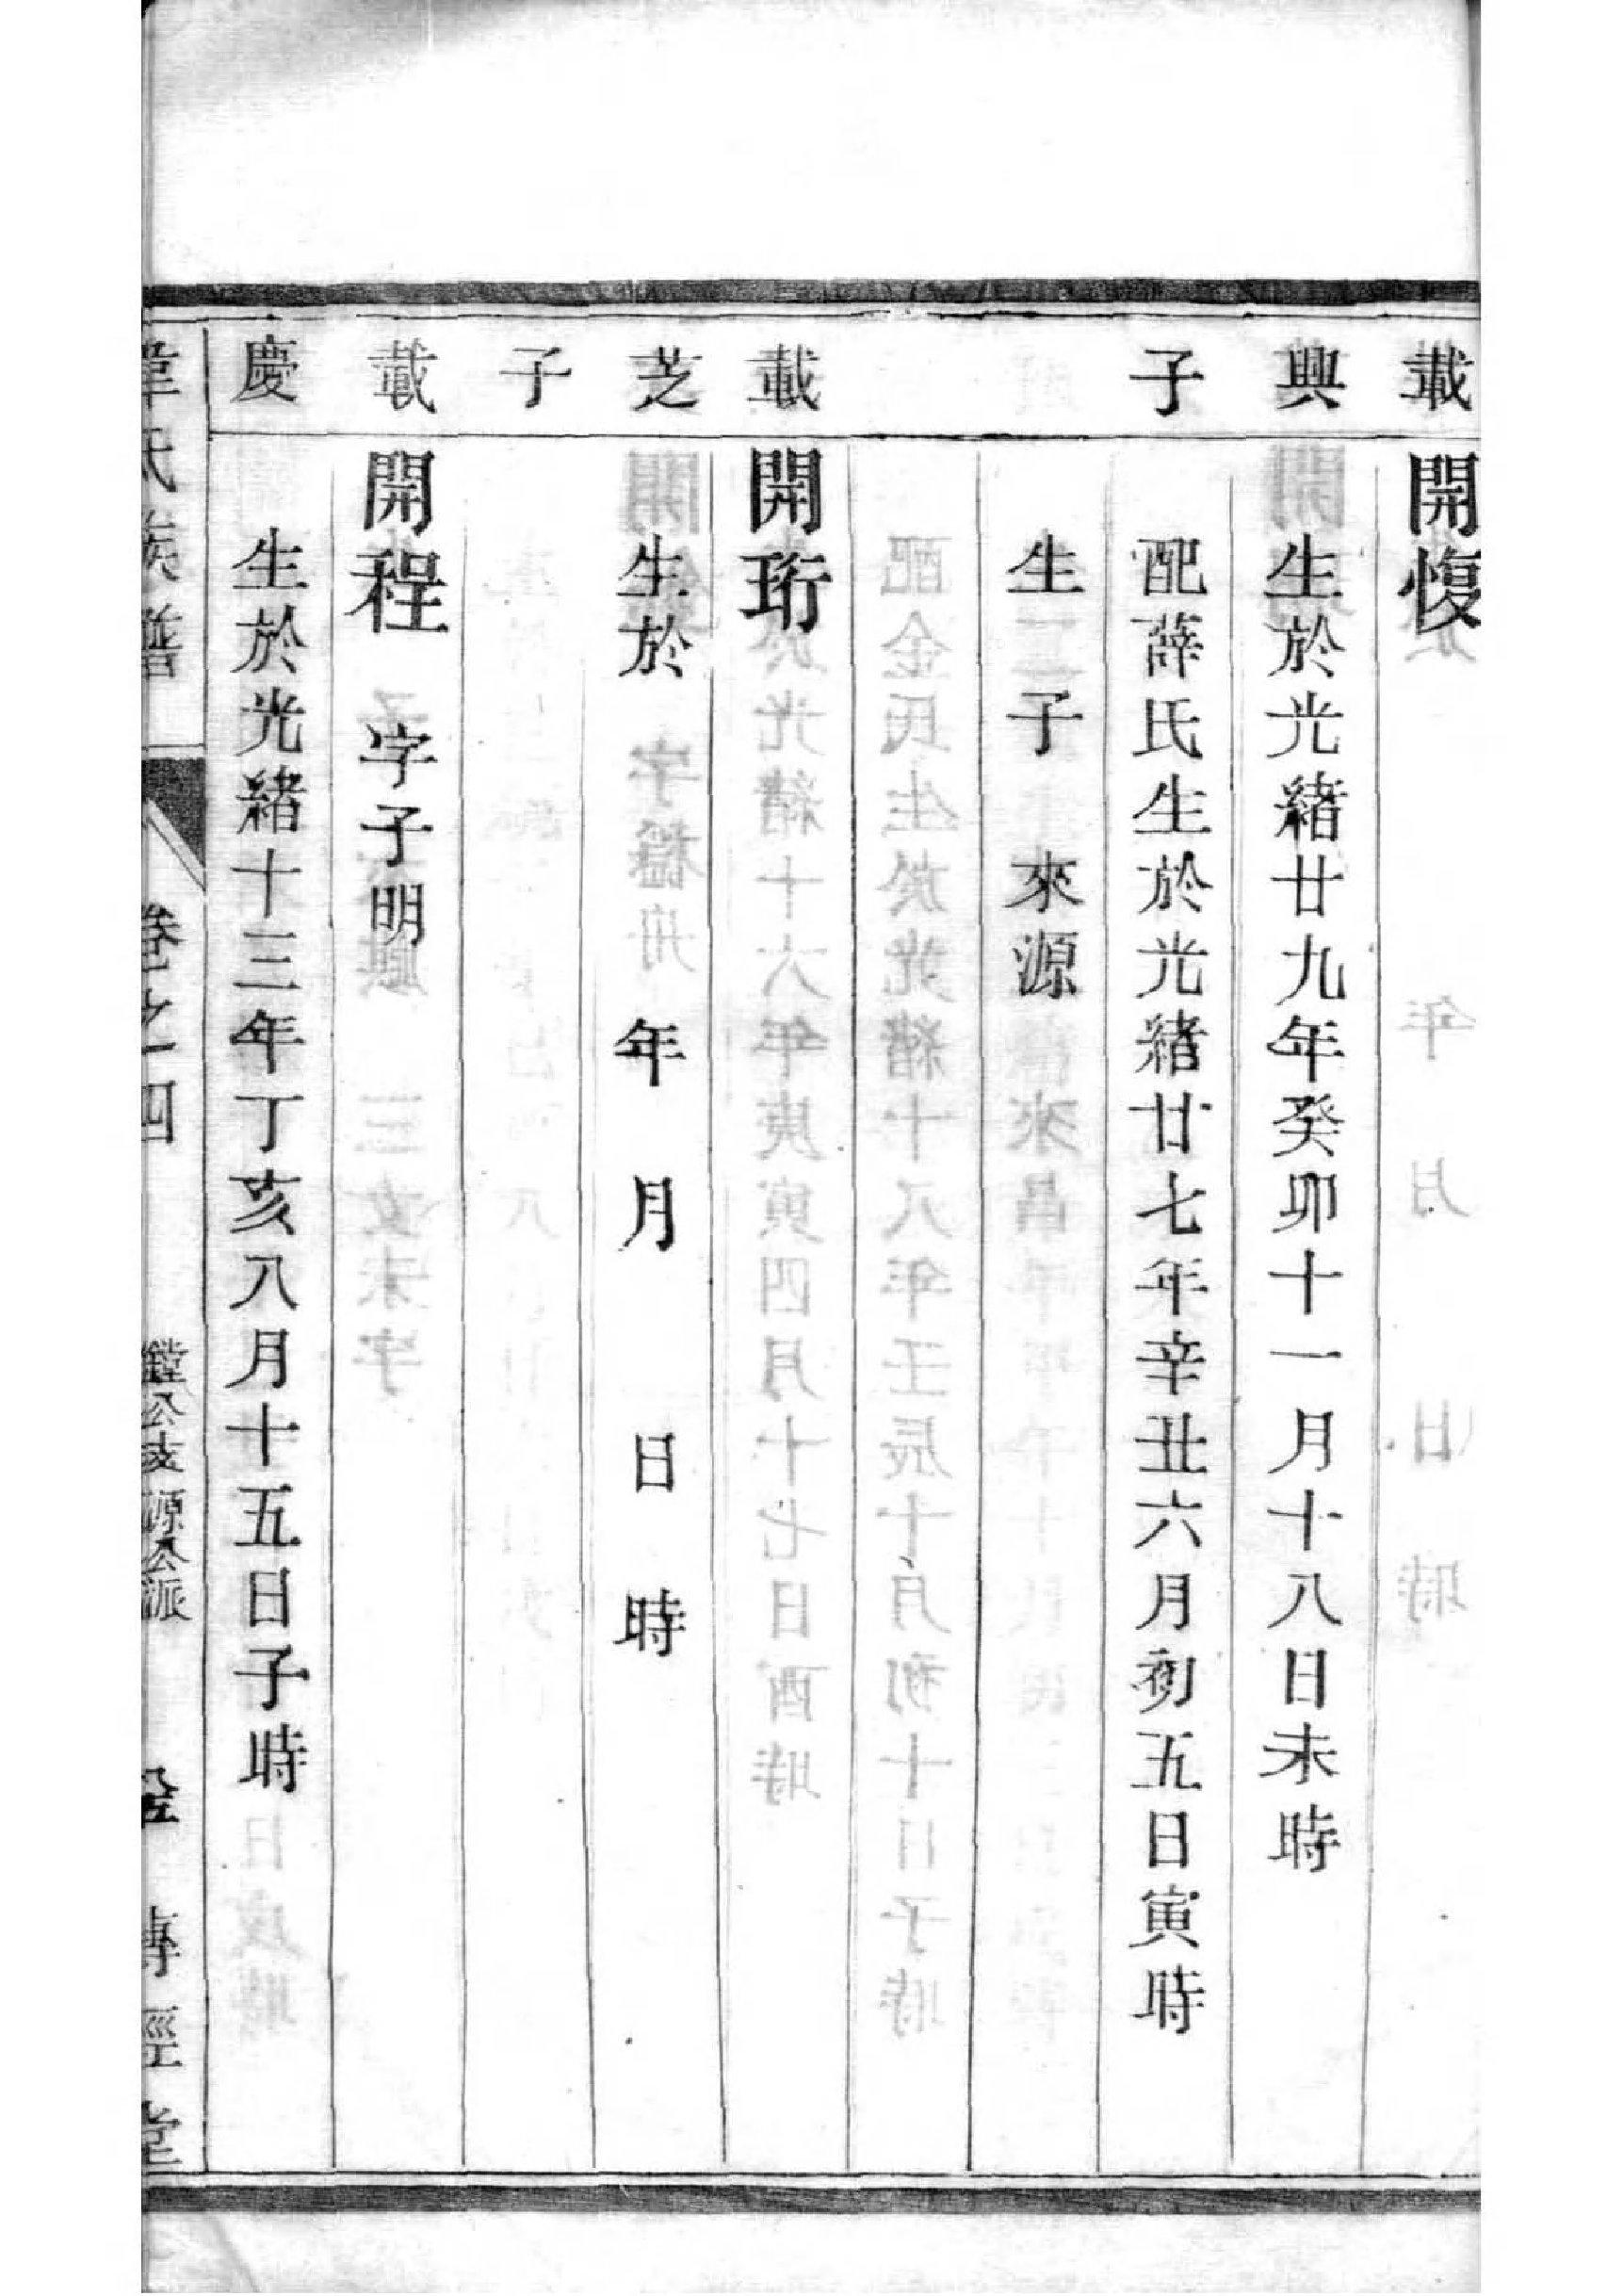 載興子
開愎
生於光緒廿九年癸卯十一月十八日未時
配薛氏生於光緒廿七年辛丑六月初五日寅時
生子來源
載芝子
開珩
生於 年 月 日 時
載慶
開程 字子明
生於光緒十三年丁亥八月十五日子時
氏族譜 卷之四 公支源公派 傳經堂